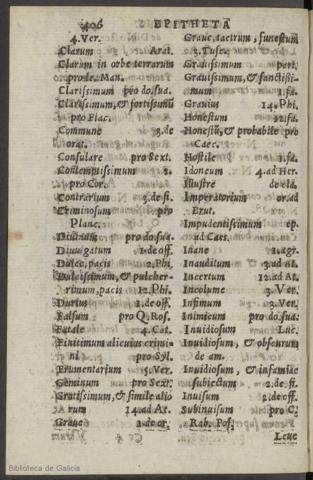 406 EPITHETA
4. Ver.
Clarum Arat.
Clarum in orbe terrarum
pro le. Man.
Clarissimum pro do.sua.
Clarissimũ, & fortissimũ
pro Flac.
Commune 3. de
orat.
Consulare pro Sext.
Contemptissimum 2.
pro Cor.
Contrarium 5. de fi.
Criminosum pro
Planc.
Diuinum pro do. sua.
Diuulgatum 1. de off.
Dulce, pacis 2. Phi.
Dulcissimum, & pulcher-
rimum, pacis 12. Phi.
Durius 1. de off.
Falsum pro Q. Ros.
Fatale 4. Cat.
Finitimum alicuius crimi-
ni pro Syl.
Frumentarium 5. Ver.
Geminum pro Sext.
Gratissimum, & simile alio
rum 14. ad At.
Graue 1. de or.
Graue, taetrum, funestum
3. Tusc.
Grauissimum part.
Grauissimum, & sanctissi-
mum 1. fa.
Grauius 14. Phi.
Honestum 12. fa.
Honestũ, & probabile pro
Caec.
Hostile 1. fa.
Idoneum 4. ad Her.
Illustre de cla.
Imperatorium or. ad
Brut.
Impudentissimum ep.
ad Caes.
Inane 2. agr.
Inauditum 3. ad At.
Incertum 12. ad At.
Incolume 3. Ver.
Infimum 3. Ver.
Inimicum pro do. sua.
Inuidiosum Luc.
Inuidiosum, & obscurum
de am.
Inuidiosum, & infamiae
subiectum 2. de fi.
Inuisum 2. de off.
Subinuisum pro C.
Rab. Post.
Leue
Biblioteca de Galicia